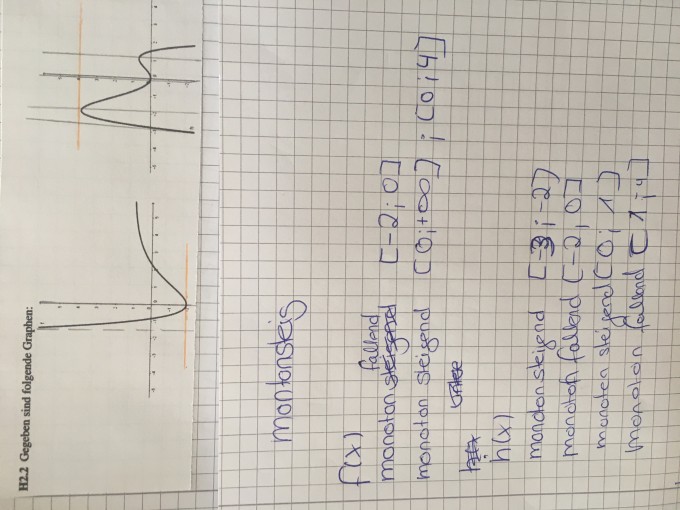 H2.2 Gegeben sind folgende Graphen:
montansteig
f(x)
fallend
monoton steigend [-2; 0]
monoton steigend [0; +∞] ; [0; 4]
h(x)
monoton steigend [-3; -2]
monoton fallend [-2; 0]
monoten steigend [0; 1]
monoton fallend [1; 4]